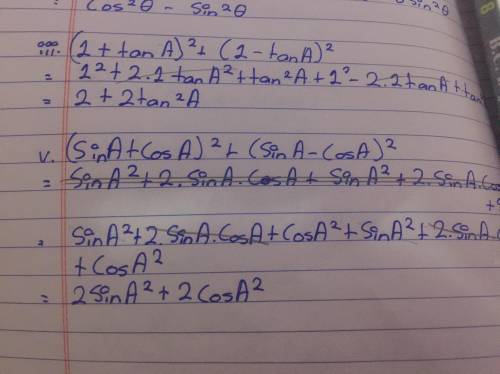 Cos²θ - Sin²θ
Sin²θ
iii. (1 + tanA)² + (1 - tanA)²
= 1² + 2.1 tanA² + tan²A + 1² - 2.1tanA + tan
= 2 + 2tan²A
v. (SinA + CosA)² + (SinA - CosA)²
= SinA² + 2.SinA.CosA + SinA² + 2.SinA.Cos
+
= SinA² + 2.SinA.CosA + CosA² + SinA² + 2.SinA.
+ CosA²
= 2SinA² + 2CosA²